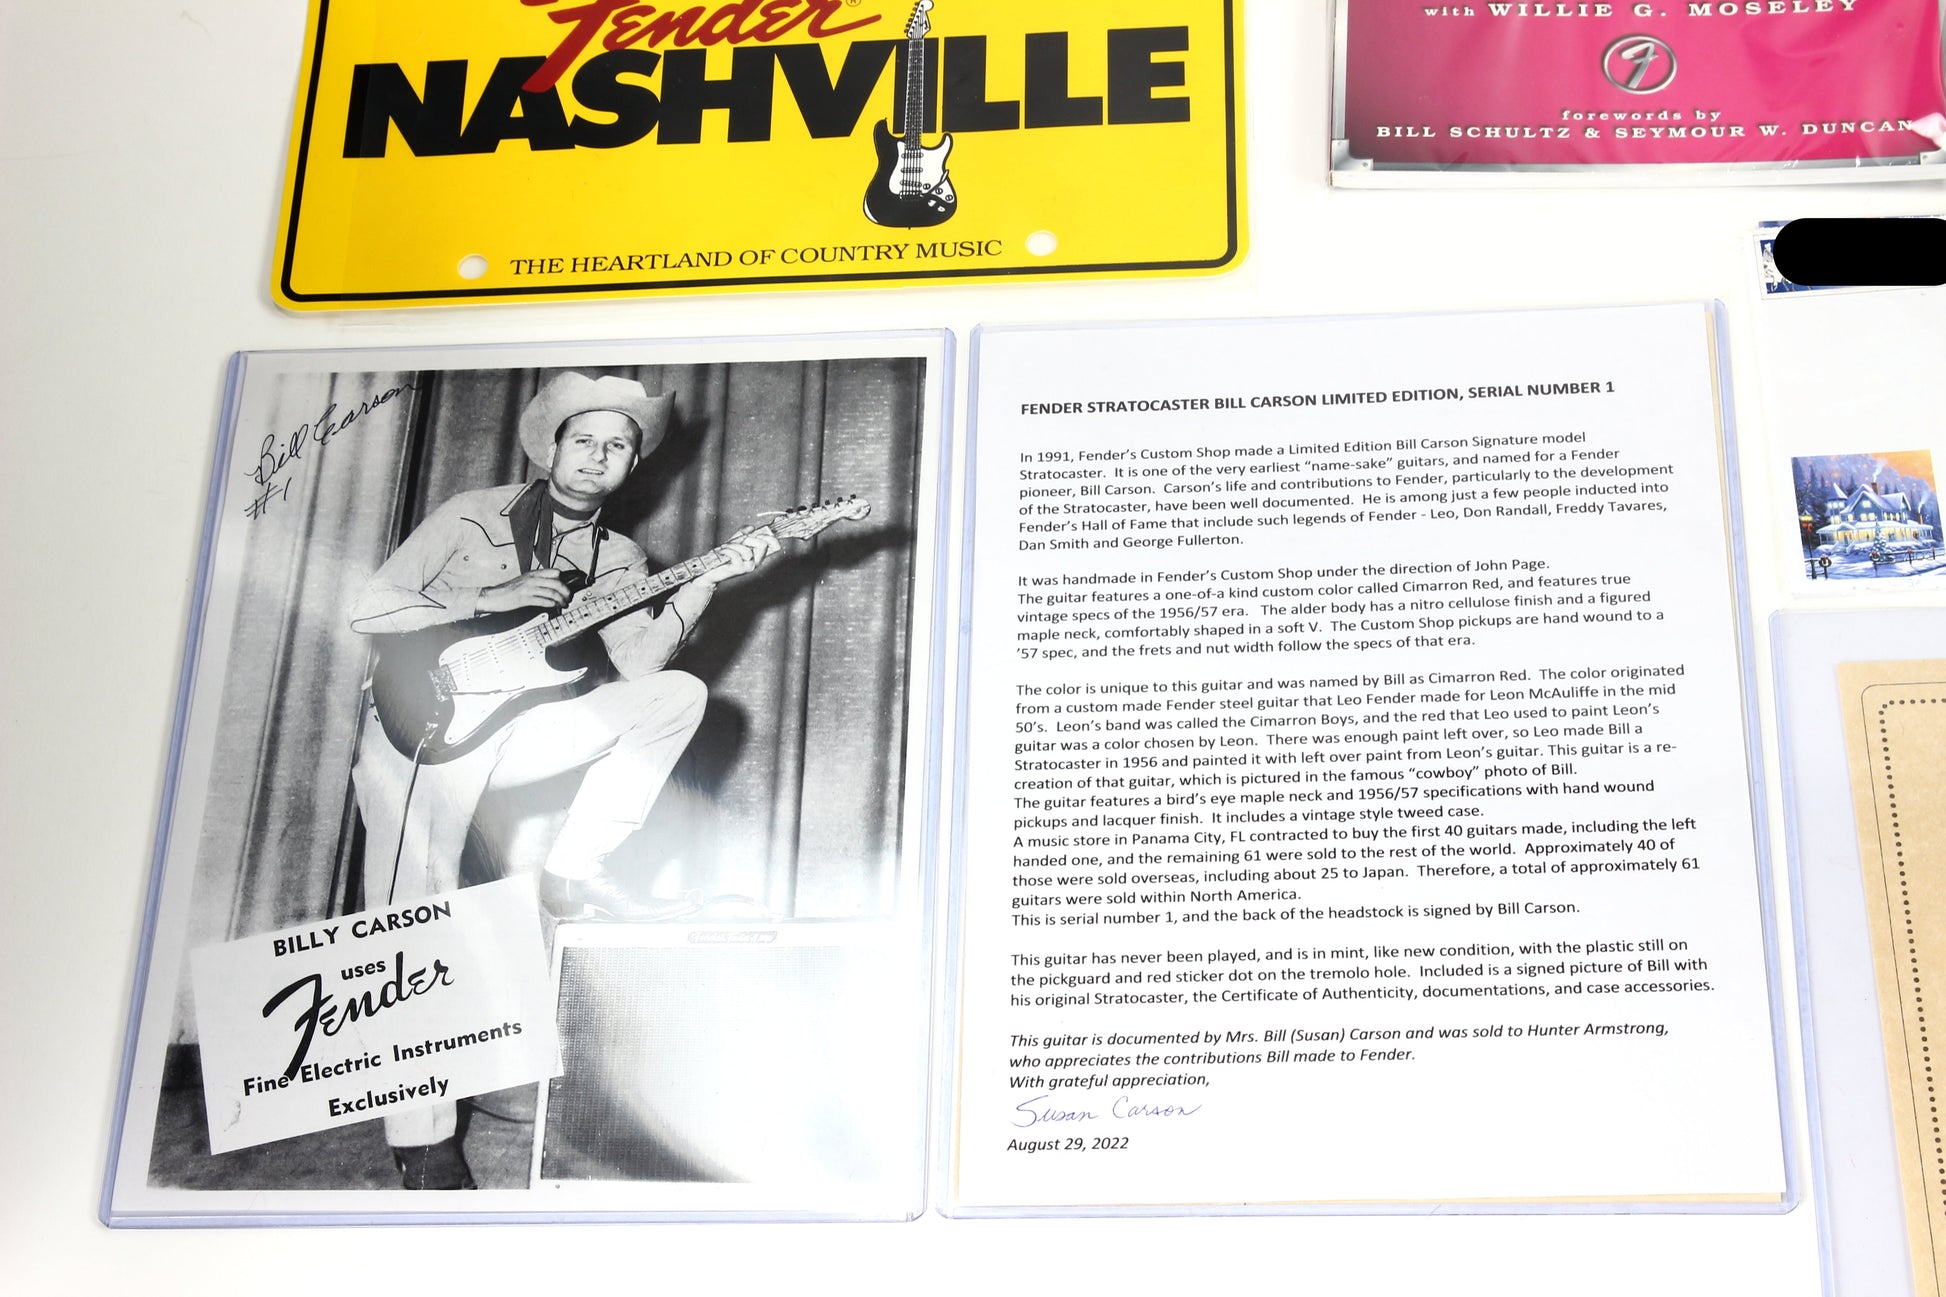 Fender®
NASHVILLE
THE HEARTLAND OF COUNTRY MUSIC
with WILLIE G. MOSELEY
F
forewords by
BILL SCHULTZ & SEYMOUR W. DUNCAN
Bill Carson
#1
BILLY CARSON
uses
Fender
Fine Electric Instruments
Exclusively
FENDER STRATOCASTER BILL CARSON LIMITED EDITION, SERIAL NUMBER 1
In 1991, Fender's Custom Shop made a Limited Edition Bill Carson Signature model
Stratocaster. It is one of the very earliest "name-sake" guitars, and named for a Fender
pioneer, Bill Carson. Carson's life and contributions to Fender, particularly to the development
of the Stratocaster, have been well documented. He is among just a few people inducted into
Fender's Hall of Fame that include such legends of Fender - Leo, Don Randall, Freddy Tavares,
Dan Smith and George Fullerton.
It was handmade in Fender's Custom Shop under the direction of John Page.
The guitar features a one-of-a kind custom color called Cimarron Red, and features true
vintage specs of the 1956/57 era. The alder body has a nitro cellulose finish and a figured
maple neck, comfortably shaped in a soft V. The Custom Shop pickups are hand wound to a
'57 spec, and the frets and nut width follow the specs of that era.
The color is unique to this guitar and was named by Bill as Cimarron Red. The color originated
from a custom made Fender steel guitar that Leo Fender made for Leon McAuliffe in the mid
50's. Leon's band was called the Cimarron Boys, and the red that Leo used to paint Leon's
guitar was a color chosen by Leon. There was enough paint left over, so Leo made Bill a
Stratocaster in 1956 and painted it with left over paint from Leon's guitar. This guitar is a re-
creation of that guitar, which is pictured in the famous "cowboy" photo of Bill.
The guitar features a bird's eye maple neck and 1956/57 specifications with hand wound
pickups and lacquer finish. It includes a vintage style tweed case.
A music store in Panama City, FL contracted to buy the first 40 guitars made, including the left
handed one, and the remaining 61 were sold to the rest of the world. Approximately 40 of
those were sold overseas, including about 25 to Japan. Therefore, a total of approximately 61
guitars were sold within North America.
This is serial number 1, and the back of the headstock is signed by Bill Carson.
This guitar has never been played, and is in mint, like new condition, with the plastic still on
the pickguard and red sticker dot on the tremolo hole. Included is a signed picture of Bill with
his original Stratocaster, the Certificate of Authenticity, documentations, and case accessories.
This guitar is documented by Mrs. Bill (Susan) Carson and was sold to Hunter Armstrong,
who appreciates the contributions Bill made to Fender.
With grateful appreciation,
Susan Carson
August 29, 2022